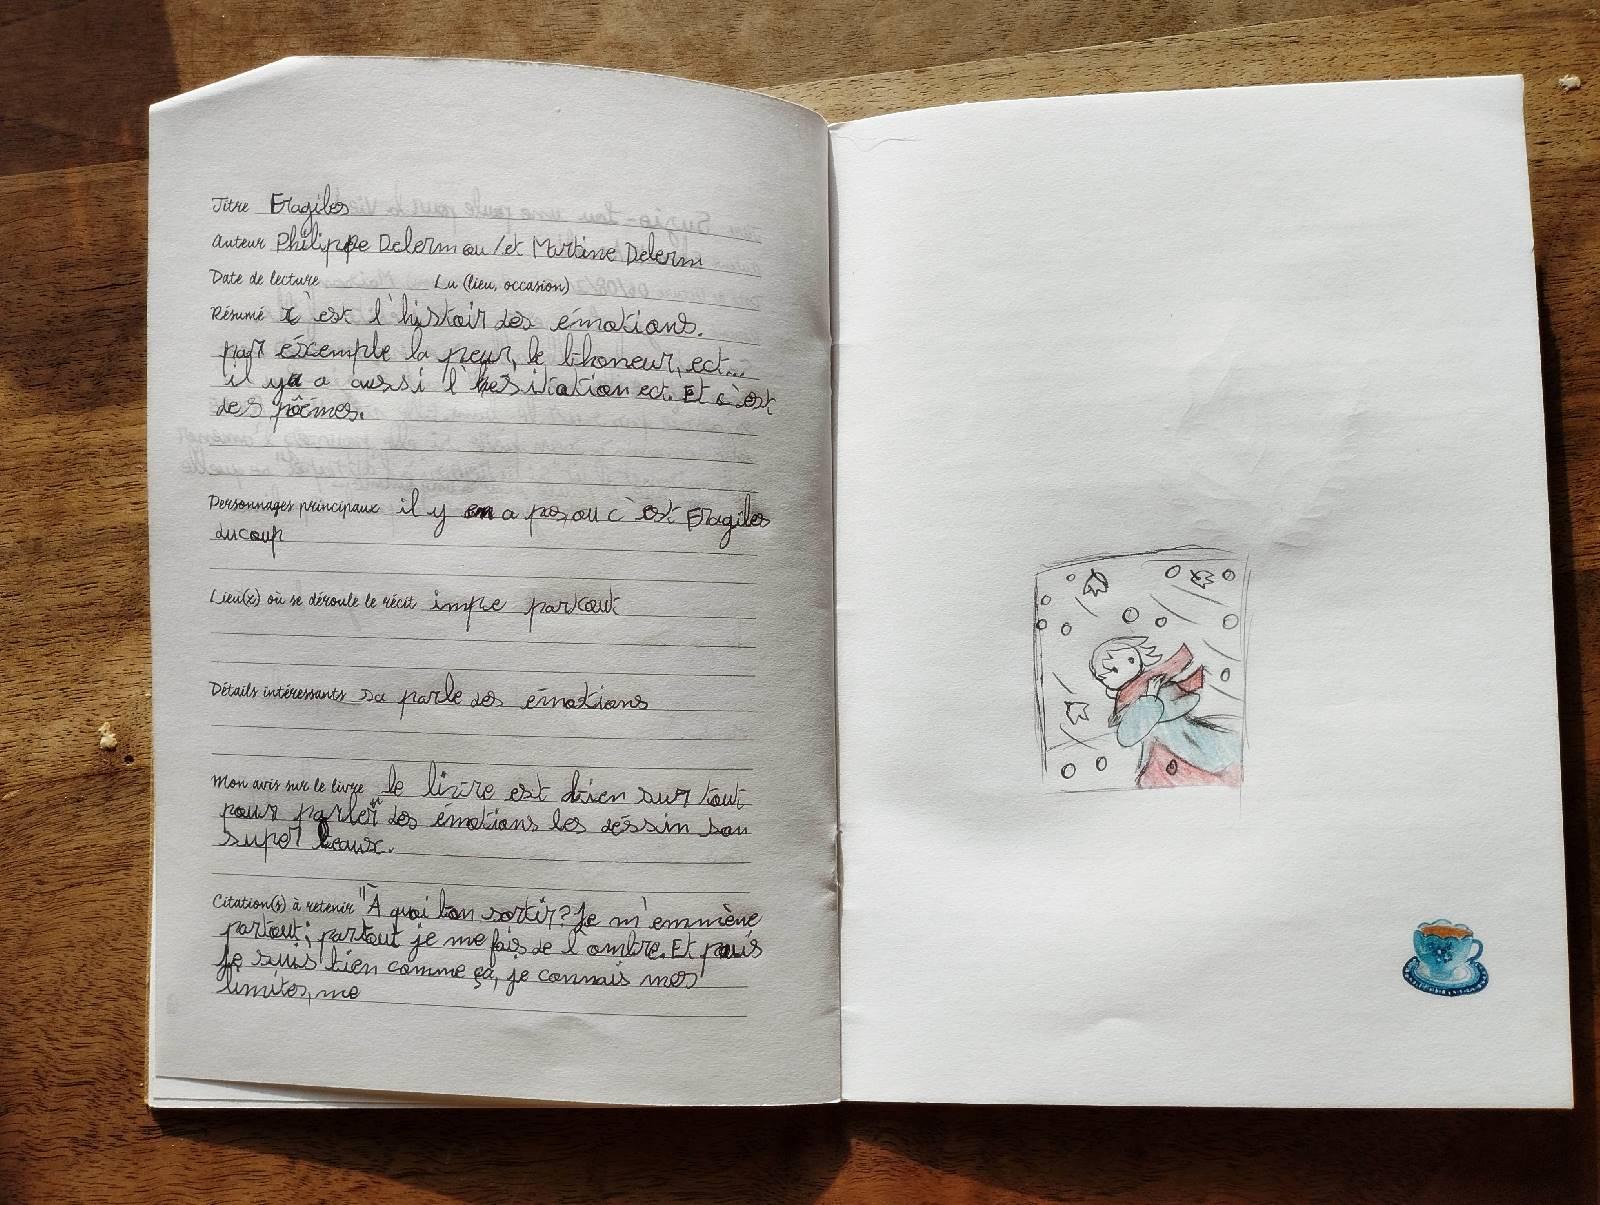 Titre Fragiles
Auteur Philippe Delerm ou / et Martine Delerm
Date de lecture Lu (lieu, occasion)
Résumé c'est l'histoir des émotions.
par éxemple la peur, le bhoneur, ect...
il y a aussi l'hesitation ect. Et c'est
des poêmes.
Personnages principaux il y en a pas, ou c'est Fragiles
ducoup
Lieu(x) où se déroule le récit partout
Détails intéressants sa parle des émotions
Mon avis sur le livre le livre est bien sur tout
pour parler des émotions les dessin son
super beaux.
Citation(s) à retenir "À quoi bon sortir? Je m'emmène
partout; partout je me fais de l'ombre. Et puis
je suis bien comme ça, je connais mes
limites, me